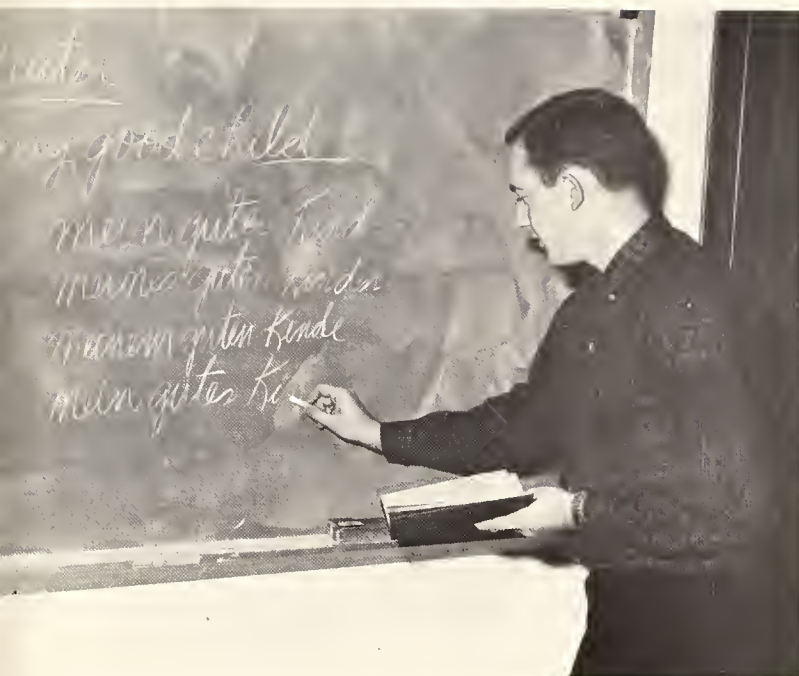 my good child
mein gutes Kind
meines guten Kindes
meinem guten Kinde
mein gutes Ki